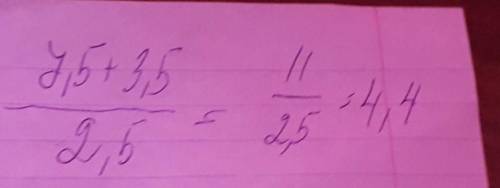 7,5 + 3,5 / 2,5 = 11 / 2,5 = 4,4